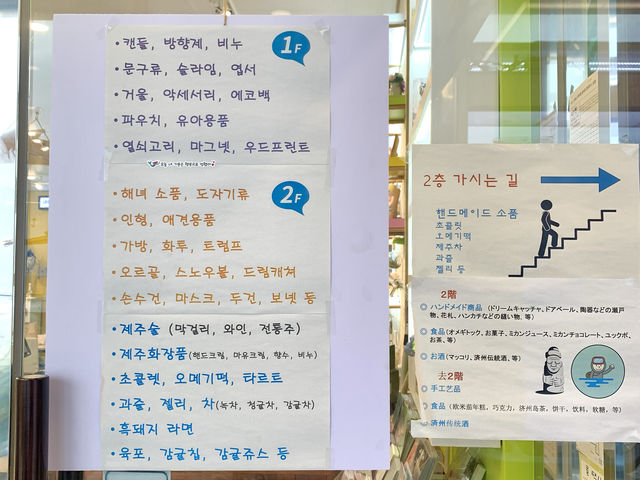 1F
• 캔들, 방향제, 비누
• 문구류, 슬라임, 엽서
• 거울, 악세서리, 에코백
• 파우치, 유아용품
• 열쇠고리, 마그넷, 우드프린트
2F
• 해녀 소품, 도자기류
• 인형, 애견용품
• 가방, 화투, 트럼프
• 오르골, 스노우볼, 드림캐쳐
• 손수건, 마스크, 두건, 보넷 등
• 제주술 (막걸리, 와인, 전통주)
• 제주화장품(핸드크림, 마유크림, 향수, 비누)
• 초콜렛, 오메기떡, 타르트
• 과즐, 젤리, 차(녹차, 청귤차, 감귤차)
• 흑돼지 라면
• 육포, 감귤칩, 감귤쥬스 등
2층 가시는 길
핸드메이드 소품
초콜릿
오메기떡
제주차
과즐
젤리 등
2階
◎ ハンドメイド商品 (ドリームキャッチャ、ドアベール、陶器などの瀬戸
物、花札、ハンカチなどの縫い物、等)
◎ 食品(オメギトック、お菓子、ミカンジュース、ミカンチョコレート、ユックポ、
お茶、等)
◎ お酒(マッコリ、済州伝統酒、等)
去2階
◎ 手工艺品
◎ 食品 (欧米茁年糕，巧克力，济州岛茶，饼干，饮料，软糖，等)
◎ 济州传统酒